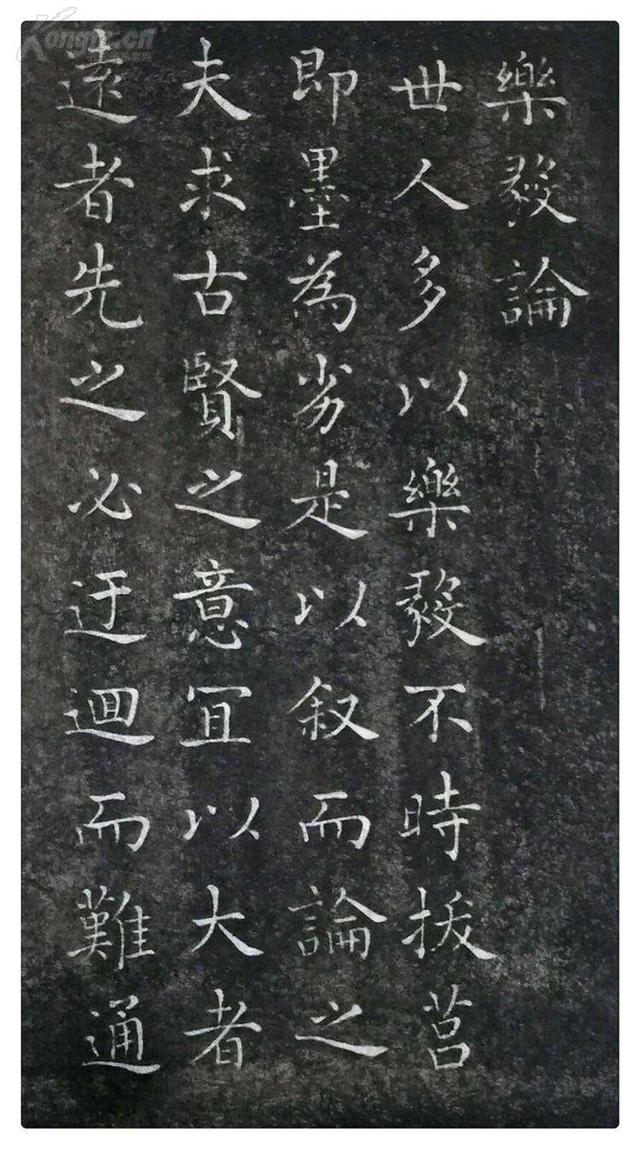 樂毅論
世人多以樂毅不時拔莒
即墨為劣是以叙而論之
夫求古賢之意冝以大者
遠者先之必迂迴而難通
Kongfz.cn